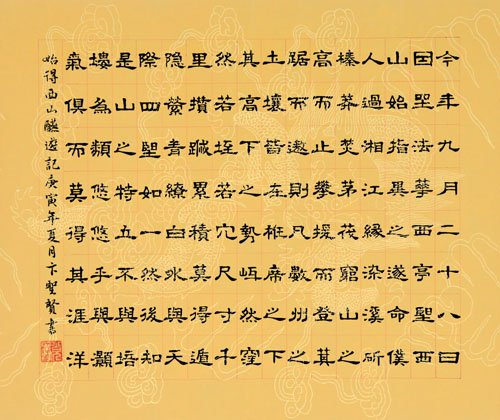 今年九月二十八日
因坐法華西亭望西
山始指異之遂命僕
人過湘江緣染溪斫
榛莽焚茅茷窮山之
高而止攀援而登箕
踞而遨則凡數州之
土壤皆在衽席之下
其高下之勢岈然窪
然若垤若穴尺寸千
里攢蹙累積莫得遁
隐縈青繚白外與天
際四望如一然後知
是山之特立不與培
塿為類悠悠乎與顥
氣俱而莫得其涯洋
始得西山醼遊記庚寅年夏月卞聖賢書